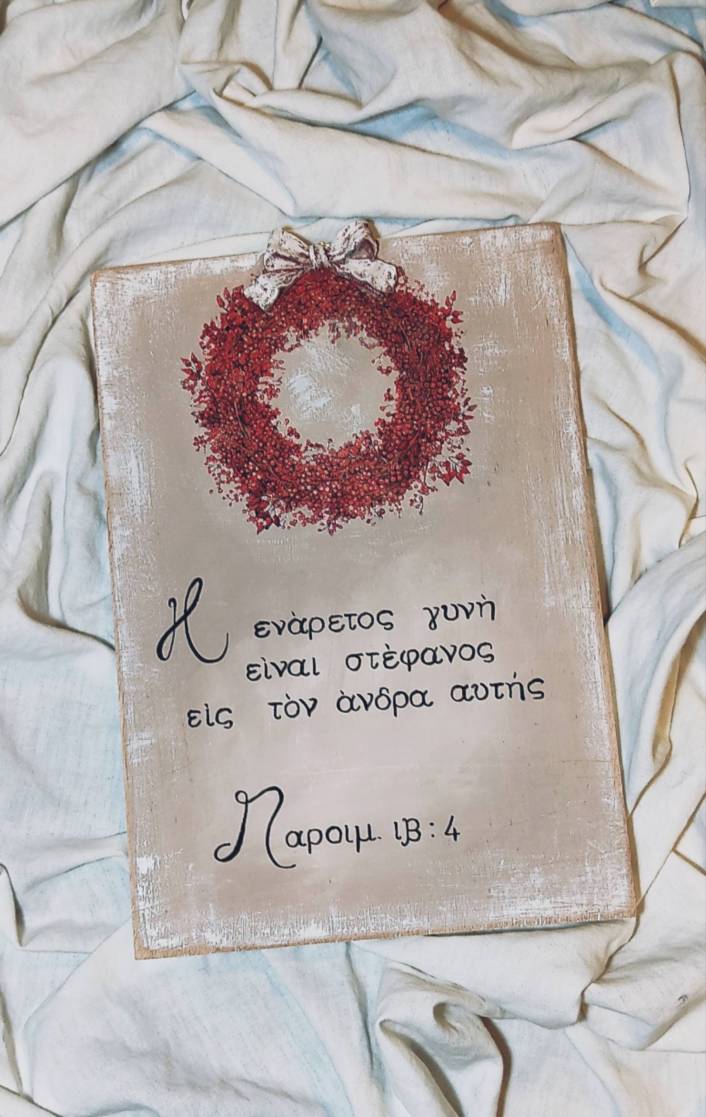 Η ενὰρετος γυνὴ
εὶναι στὲφανος
εὶς τὸν ὰνδρα αυτής
Παροιμ. ιβ : 4